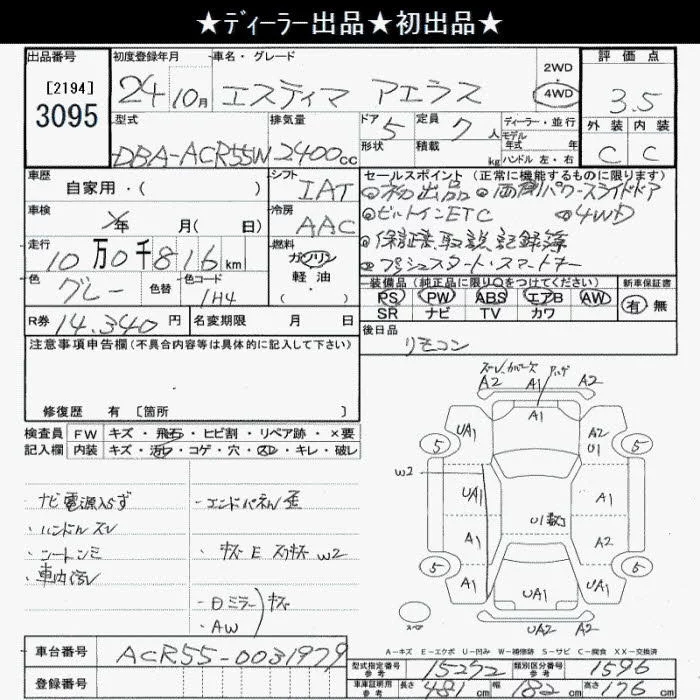 ★ディーラー出品★初出品★
出品番号 初度登録年月 車名・グレード 2WD・4WD 評価点
[2194] 24 10月 エスティマ アエラス 3.5
3095
型式 排気量 ドア 5 定員 7人 ディーラー・並行 外装 内装
DBA-ACR55W 2400cc 形状 積載 kg モデル年式 年式 ハンドル 左・右 C C
車歴 シフト セールスポイント (正常に機能するものに限ります)
自家用・( ) IAT ◎初出品 ◎両側パワースライドドア
車検 年 月( 日) 冷房 AAC ◎ビルトインETC ◎4WD
走行 燃料 ◎保証書取説記録簿
10万0千816km ガソリン ◎プッシュスタート・スマートキー
色 色替 色コード 軽油
グレー 1H4 ・( )
装備品 (純正品に限り○をつけてください) 新車保証書
PS PW ABS エアB AW 有 無
SR ナビ TV カワ
R券 14.340円 名変期限 月 日 後日品
リモコン
注意事項申告欄(不具合内容等は具体的に記入して下さい)
修復歴 有 [箇所 ]
検査員 FW キズ・飛石・ヒビ割・リペア跡・×要
記入欄 内装 キズ・汚レ・コゲ・穴・スレ・キレ・破レ
・ナビ電源入らず ・エンドパネル歪
・ハンドルスレ
・シートシミ ・キズE スリキズ W2
・車内汚レ
・ミラー キズ
・AW
A2 A1 A2
アゲ
A1
UA1 A2
U1
5 5
W2
UA1 A1
U1数コ
A1 A2
5 5
A1 UA1 A1
スペア
UA2 A2
A-キズ E-エクボ U-凹み W-補修跡 S-サビ C-腐食 XX-交換済
車台番号 ACR55-0031979
型式指定番号 参考 15272 類別区分番号 参考 1596
登録番号
車庫証明用 参考 長さ 481cm 幅 182cm 高さ 176cm